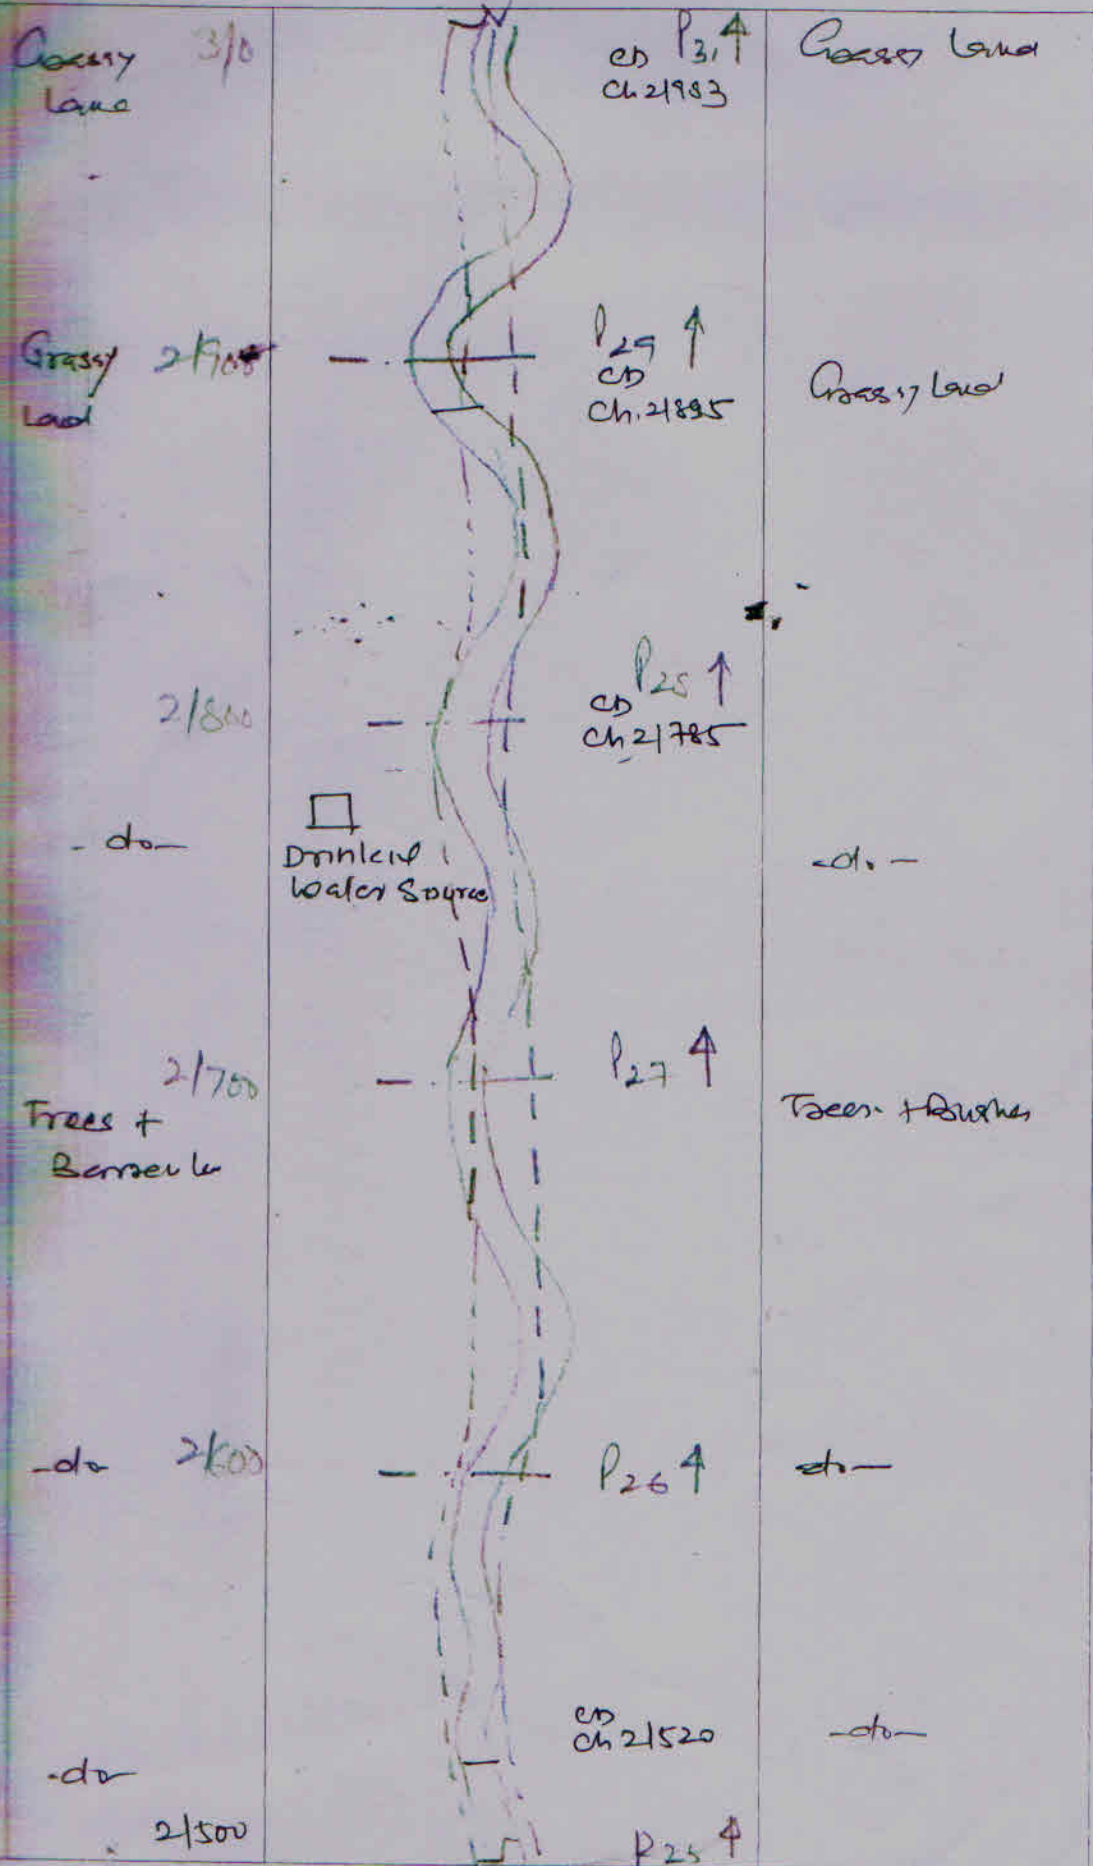 Grassy 3/0
Land
CD P3, ↑
Ch 2/983
Grassy Land
Grassy 2/900
Land
P29 ↑
CD
Ch. 2/895
Grassy Land
2/800
P28 ↑
CD
Ch 2/785
- do -
Drinking
Water Source
- do -
2/700
P27 ↑
Trees +
Trees + Bushes
- do 2/600
P26 ↑
- do -
CD
Ch 2/520
- do -
- do -
2/500
P25 ↑